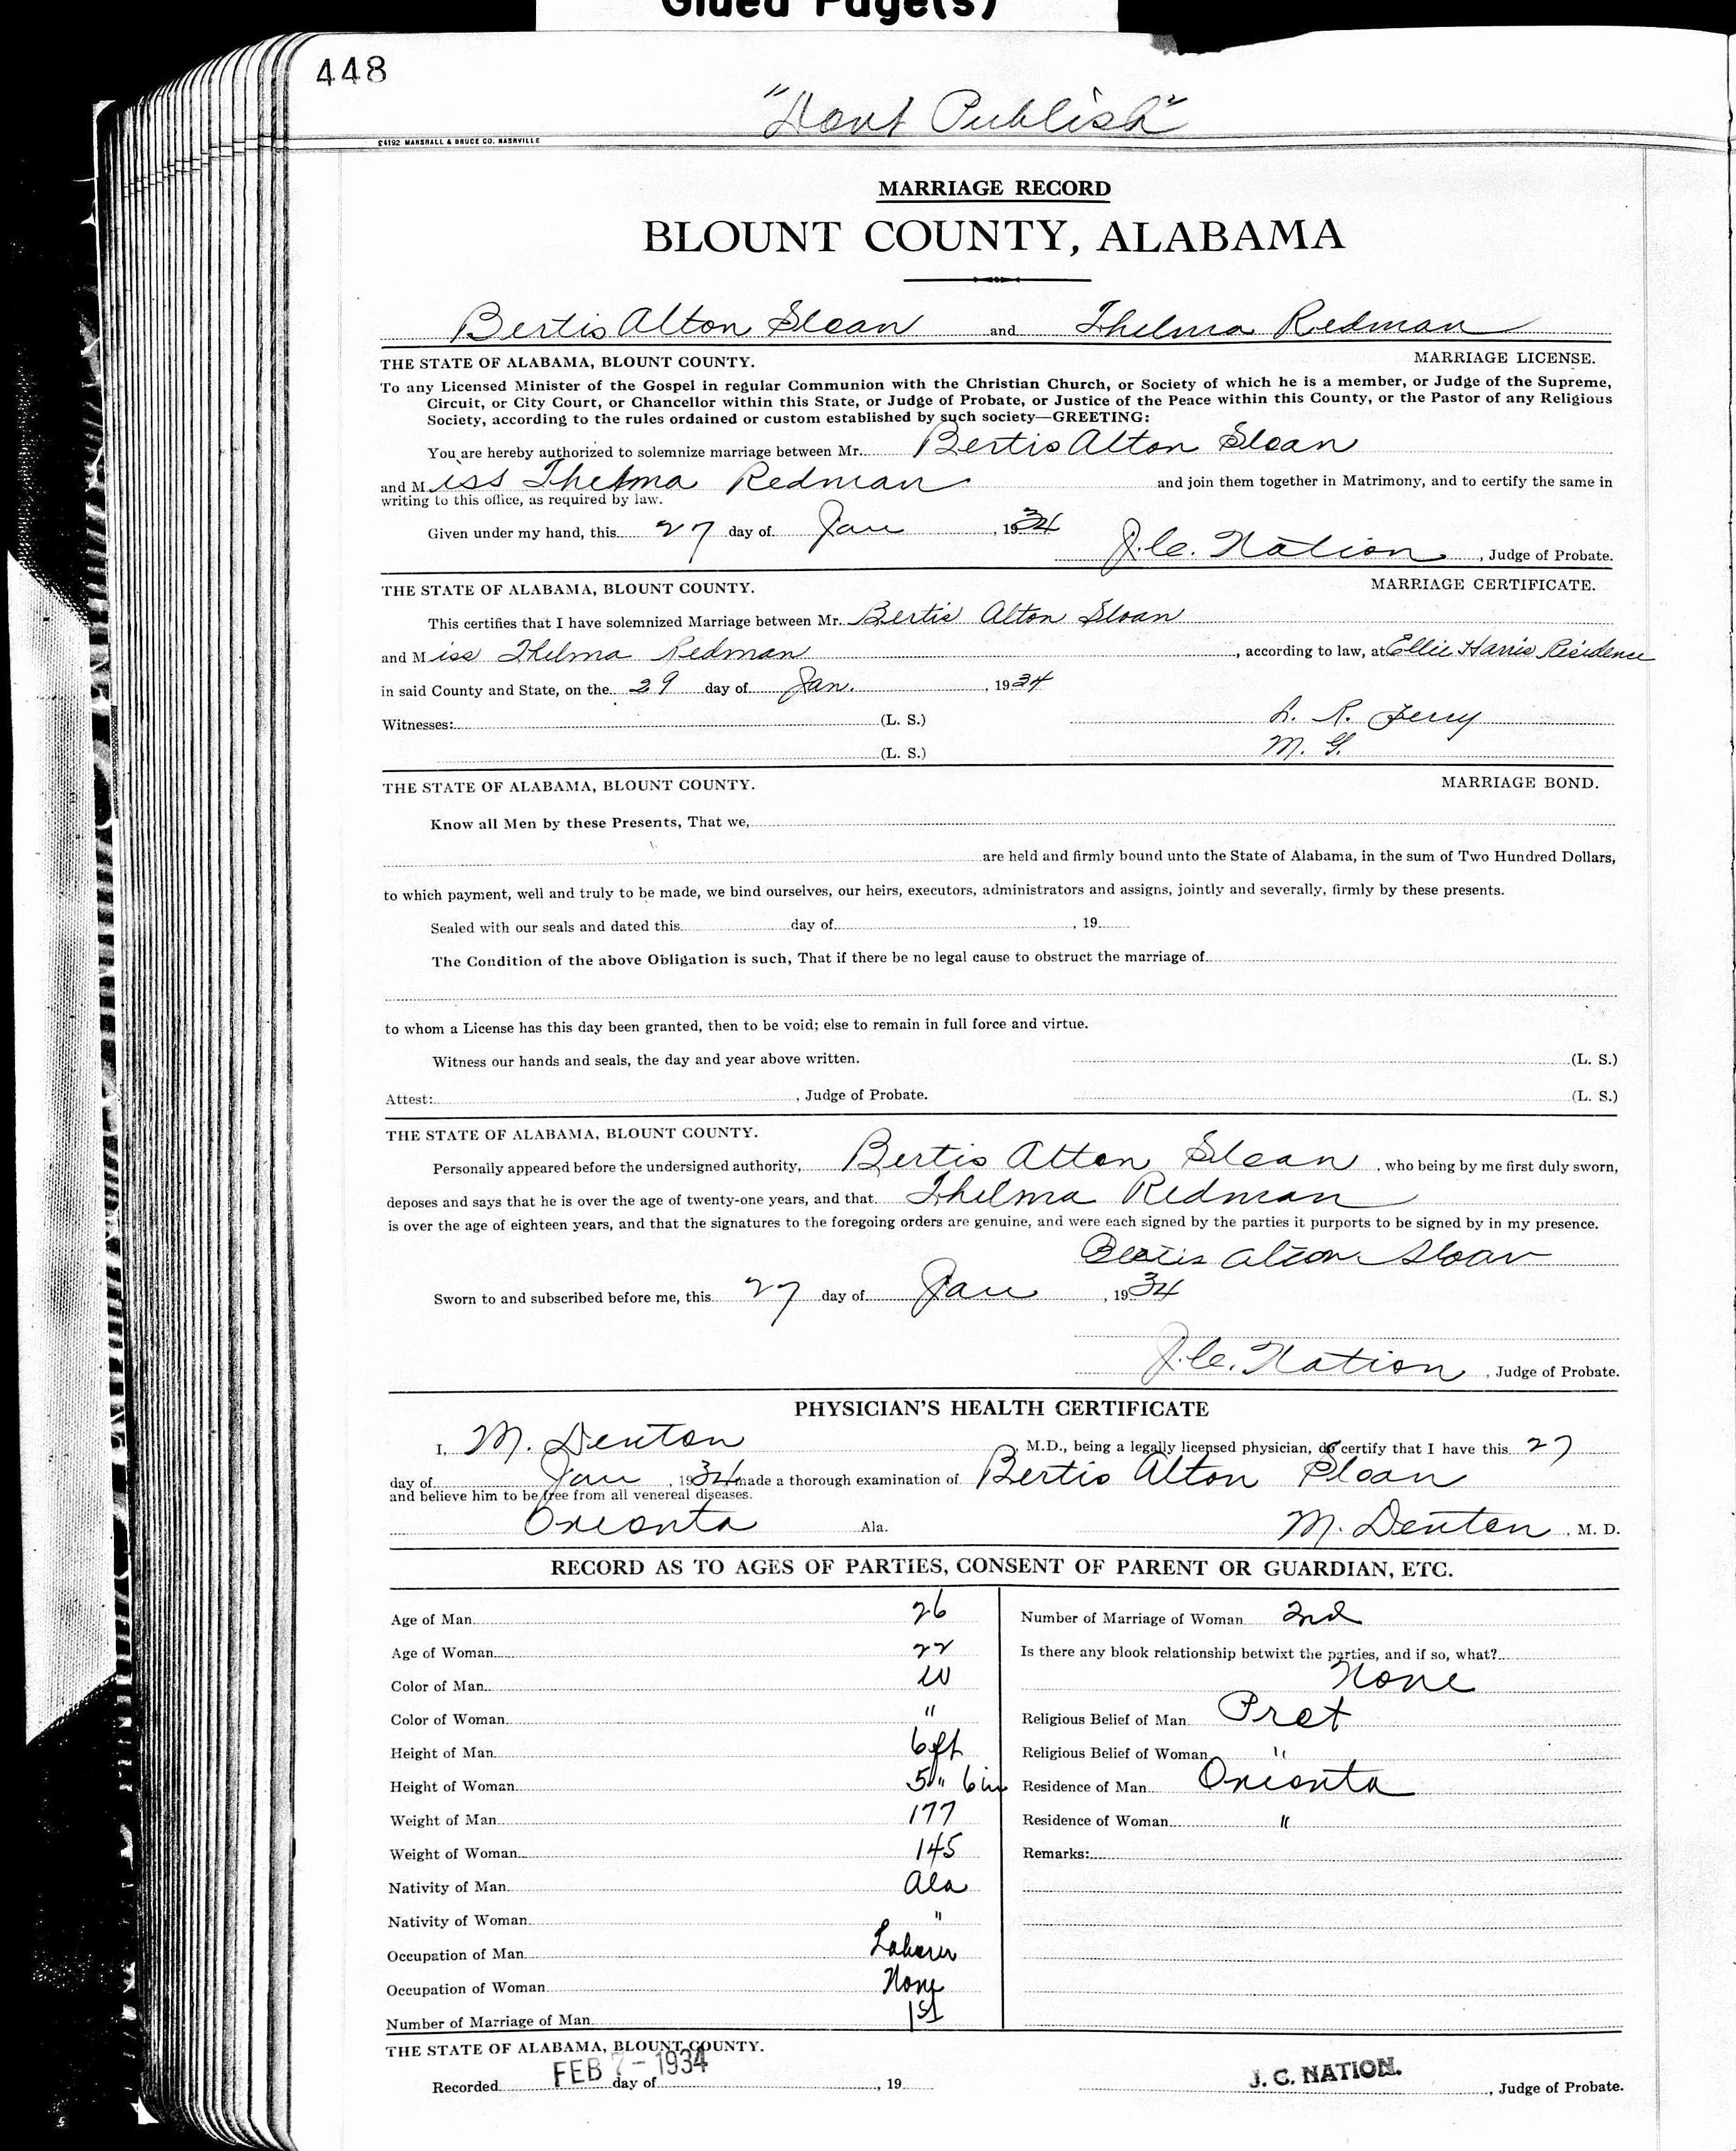 Glued Page(s)
448
"Dont Publish"
£4192 MARSHALL & BRUCE CO. NASHVILLE
MARRIAGE RECORD
BLOUNT COUNTY, ALABAMA
Bertis Alton Sloan and Thelma Redman
THE STATE OF ALABAMA, BLOUNT COUNTY. MARRIAGE LICENSE.
To any Licensed Minister of the Gospel in regular Communion with the Christian Church, or Society of which he is a member, or Judge of the Supreme,
Circuit, or City Court, or Chancellor within this State, or Judge of Probate, or Justice of the Peace within this County, or the Pastor of any Religious
Society, according to the rules ordained or custom established by such society—GREETING:
You are hereby authorized to solemnize marriage between Mr. Bertis Alton Sloan
and Miss Thelma Redman and join them together in Matrimony, and to certify the same in
writing to this office, as required by law.
Given under my hand, this 27 day of Jan, 1934
J. C. Nation, Judge of Probate.
THE STATE OF ALABAMA, BLOUNT COUNTY. MARRIAGE CERTIFICATE.
This certifies that I have solemnized Marriage between Mr. Bertis Alton Sloan
and Miss Thelma Redman, according to law, at Ellie Harris Residence
in said County and State, on the 29 day of Jan., 1934
Witnesses: (L. S.) L. R. Terry
(L. S.) M. G.
THE STATE OF ALABAMA, BLOUNT COUNTY. MARRIAGE BOND.
Know all Men by these Presents, That we,
are held and firmly bound unto the State of Alabama, in the sum of Two Hundred Dollars,
to which payment, well and truly to be made, we bind ourselves, our heirs, executors, administrators and assigns, jointly and severally, firmly by these presents.
Sealed with our seals and dated this day of , 19
The Condition of the above Obligation is such, That if there be no legal cause to obstruct the marriage of
to whom a License has this day been granted, then to be void; else to remain in full force and virtue.
Witness our hands and seals, the day and year above written. (L. S.)
Attest: , Judge of Probate. (L. S.)
THE STATE OF ALABAMA, BLOUNT COUNTY.
Personally appeared before the undersigned authority, Bertis Alton Sloan, who being by me first duly sworn,
deposes and says that he is over the age of twenty-one years, and that Thelma Redman
is over the age of eighteen years, and that the signatures to the foregoing orders are genuine, and were each signed by the parties it purports to be signed by in my presence.
Bertis Alton Sloan
Sworn to and subscribed before me, this 27 day of Jan, 1934
J. C. Nation, Judge of Probate.
PHYSICIAN'S HEALTH CERTIFICATE
I, M. Denton, M.D., being a legally licensed physician, do certify that I have this 27
day of Jan, 1934 made a thorough examination of Bertis Alton Sloan
and believe him to be free from all venereal diseases.
Oneonta Ala. M. Denton, M. D.
RECORD AS TO AGES OF PARTIES, CONSENT OF PARENT OR GUARDIAN, ETC.
Age of Man 26
Age of Woman 22
Color of Man W
Color of Woman "
Height of Man 6 ft
Height of Woman 5 " 6 in
Weight of Man 177
Weight of Woman 145
Nativity of Man Ala
Nativity of Woman "
Occupation of Man Laborer
Occupation of Woman None
Number of Marriage of Man 1st
Number of Marriage of Woman 2nd
Is there any blook relationship betwixt the parties, and if so, what?
None
Religious Belief of Man Prot
Religious Belief of Woman "
Residence of Man Oneonta
Residence of Woman "
Remarks:
THE STATE OF ALABAMA, BLOUNT COUNTY.
Recorded FEB 7 - 1934 day of , 19 J. C. NATION. , Judge of Probate.